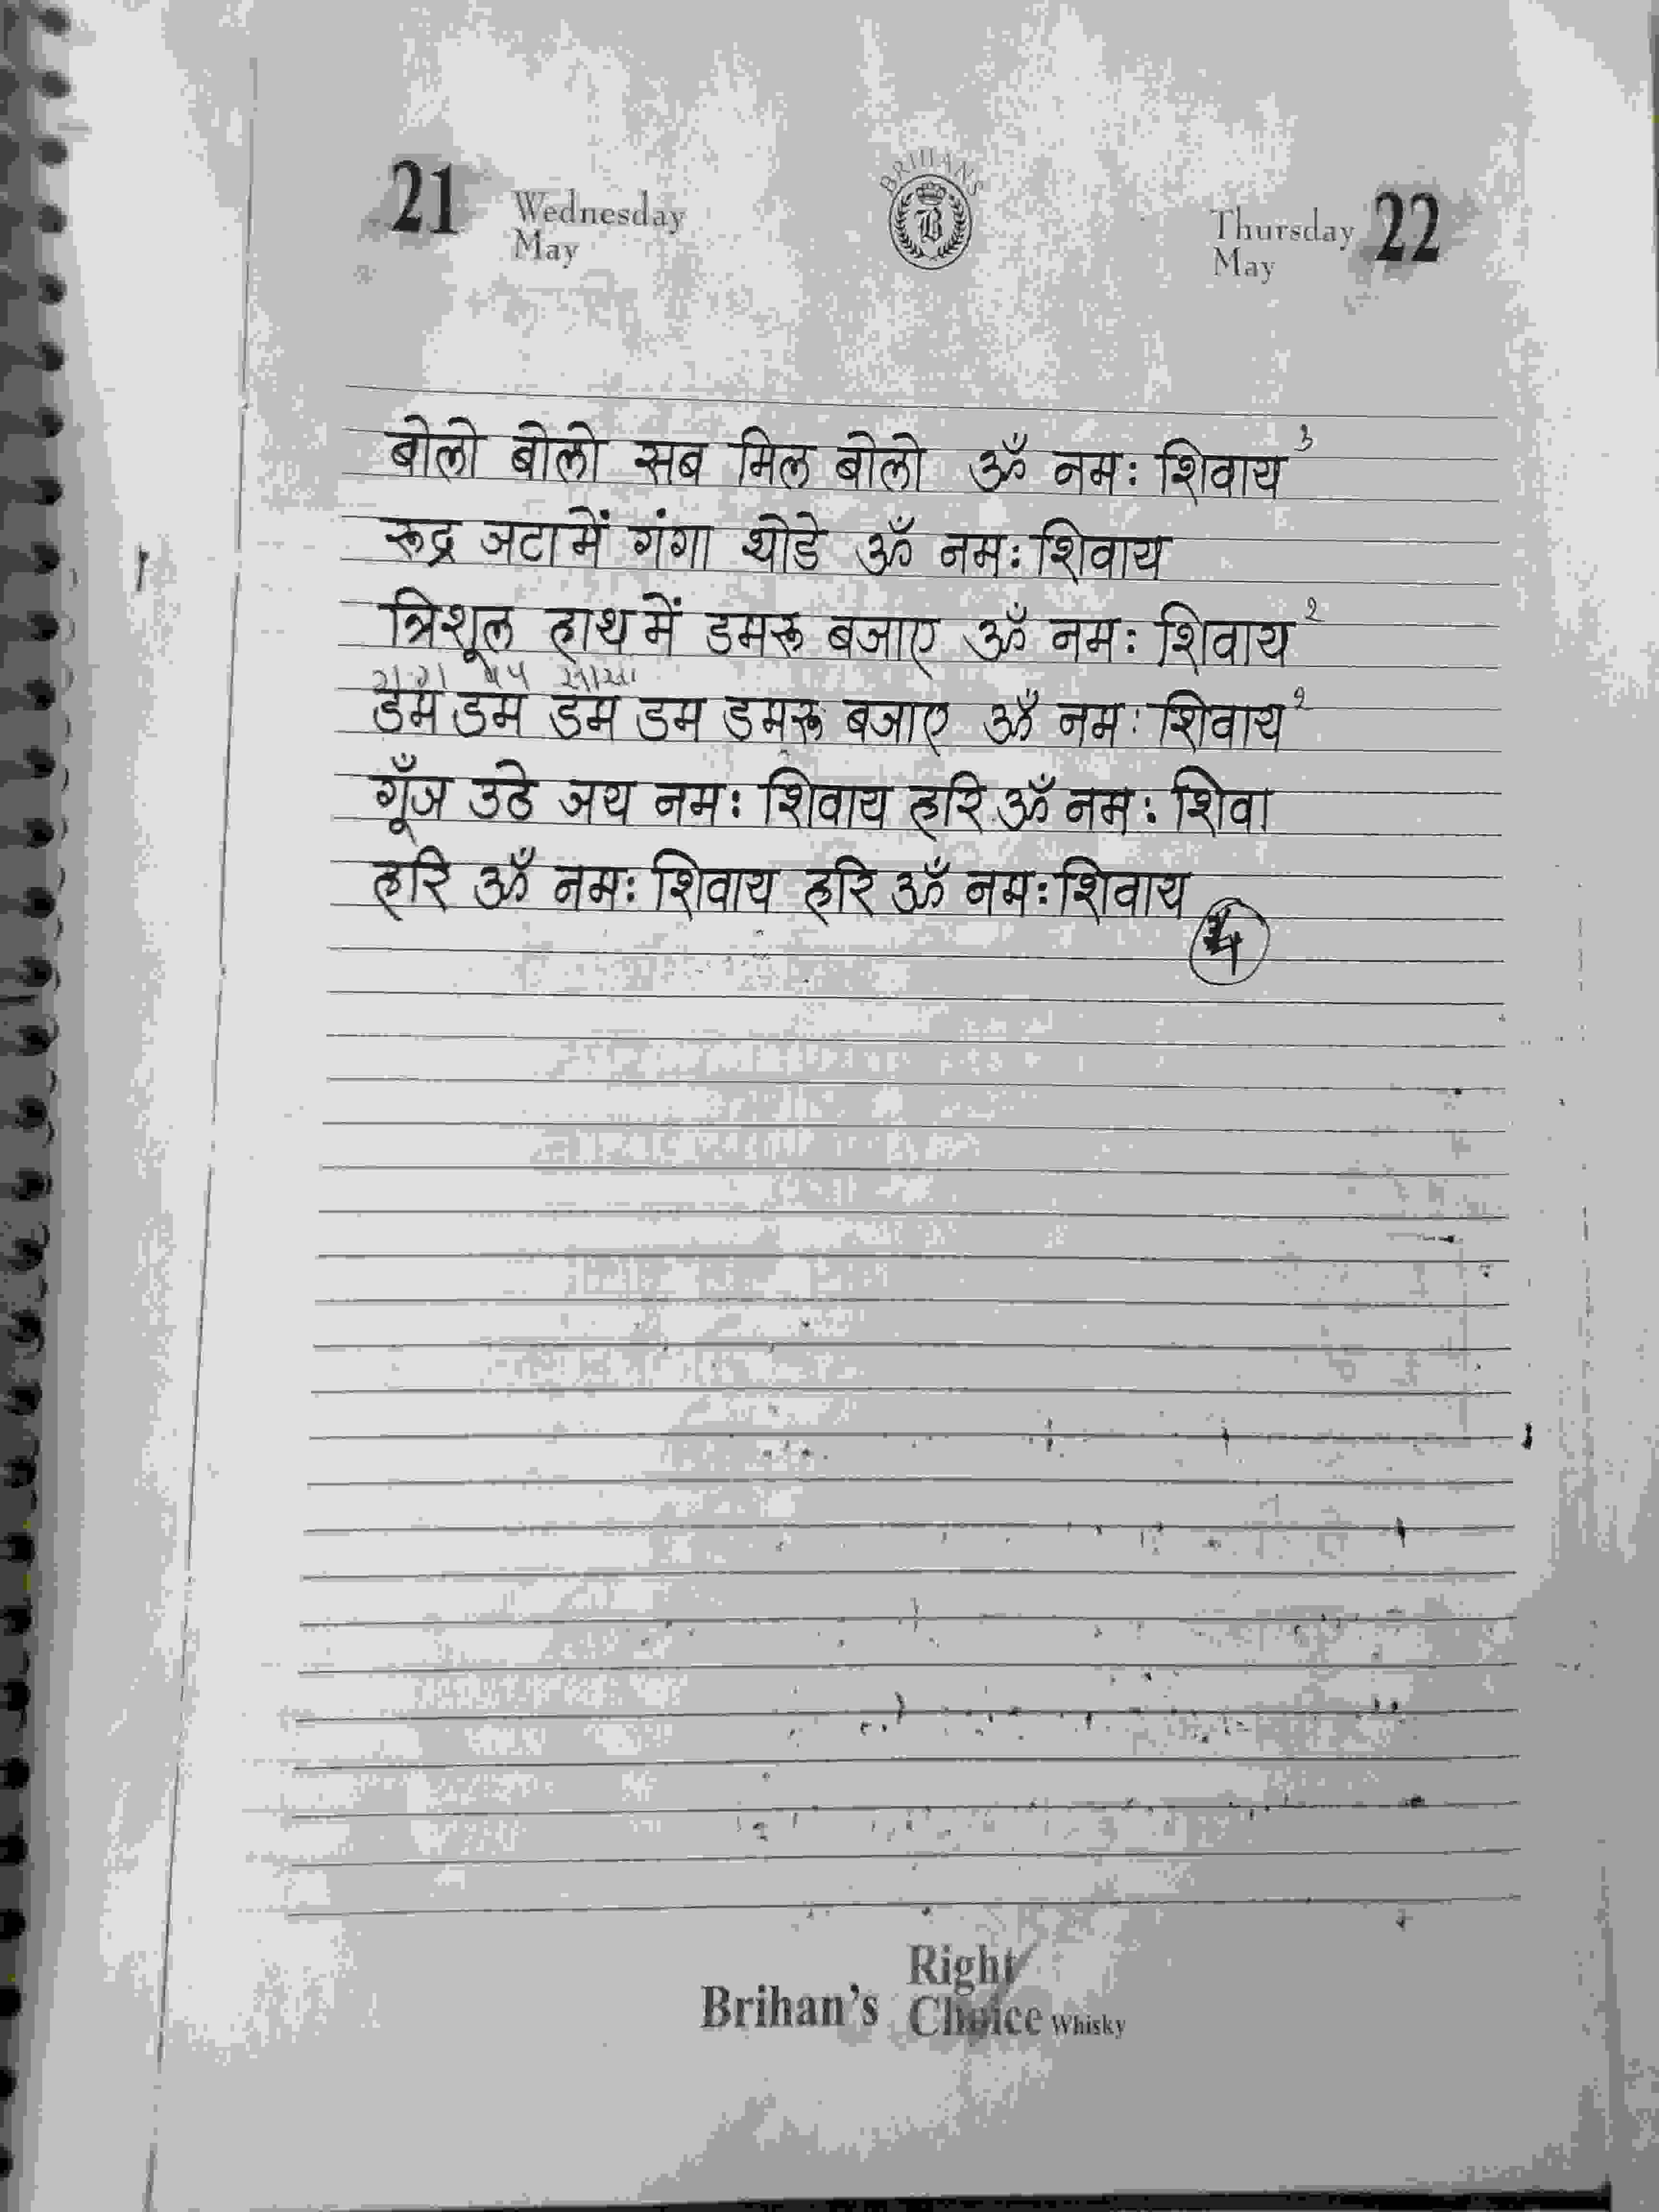 21 Wednesday May BRIHANS B Thursday May 22
बोलो बोलो सब मिल बोलो ॐ नमः शिवाय ३
रूद्र जटा में गंगा थोडे ॐ नमः शिवाय
त्रिशूल हाथ में डमरू बजाए ॐ नमः शिवाय २
डम डम डम डम डमरू बजाए ॐ नमः शिवाय २
गूँज उठे जय नमः शिवाय हरि ॐ नमः शिवा
हरि ॐ नमः शिवाय हरि ॐ नमः शिवाय
Brihan's Right Choice Whisky